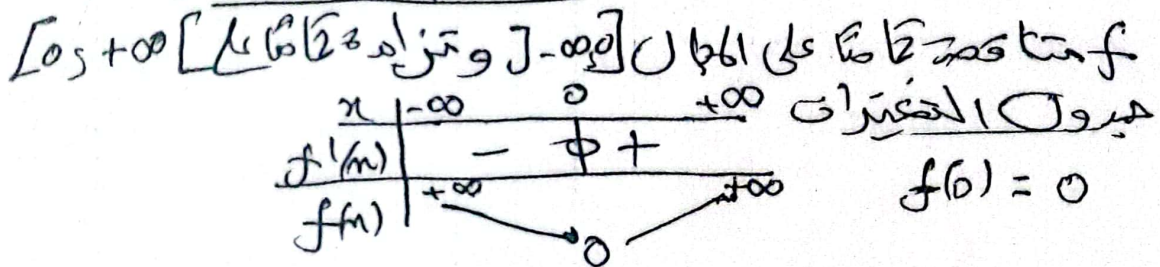 f متناقصة تماما على المجال ]-∞,0] وتتزايد تماما على [0; +∞[
جدول التغيرات
x | -∞ 0 +∞
f'(x) | - 0 +
f(x) | +∞ 0 +∞
f(0) = 0